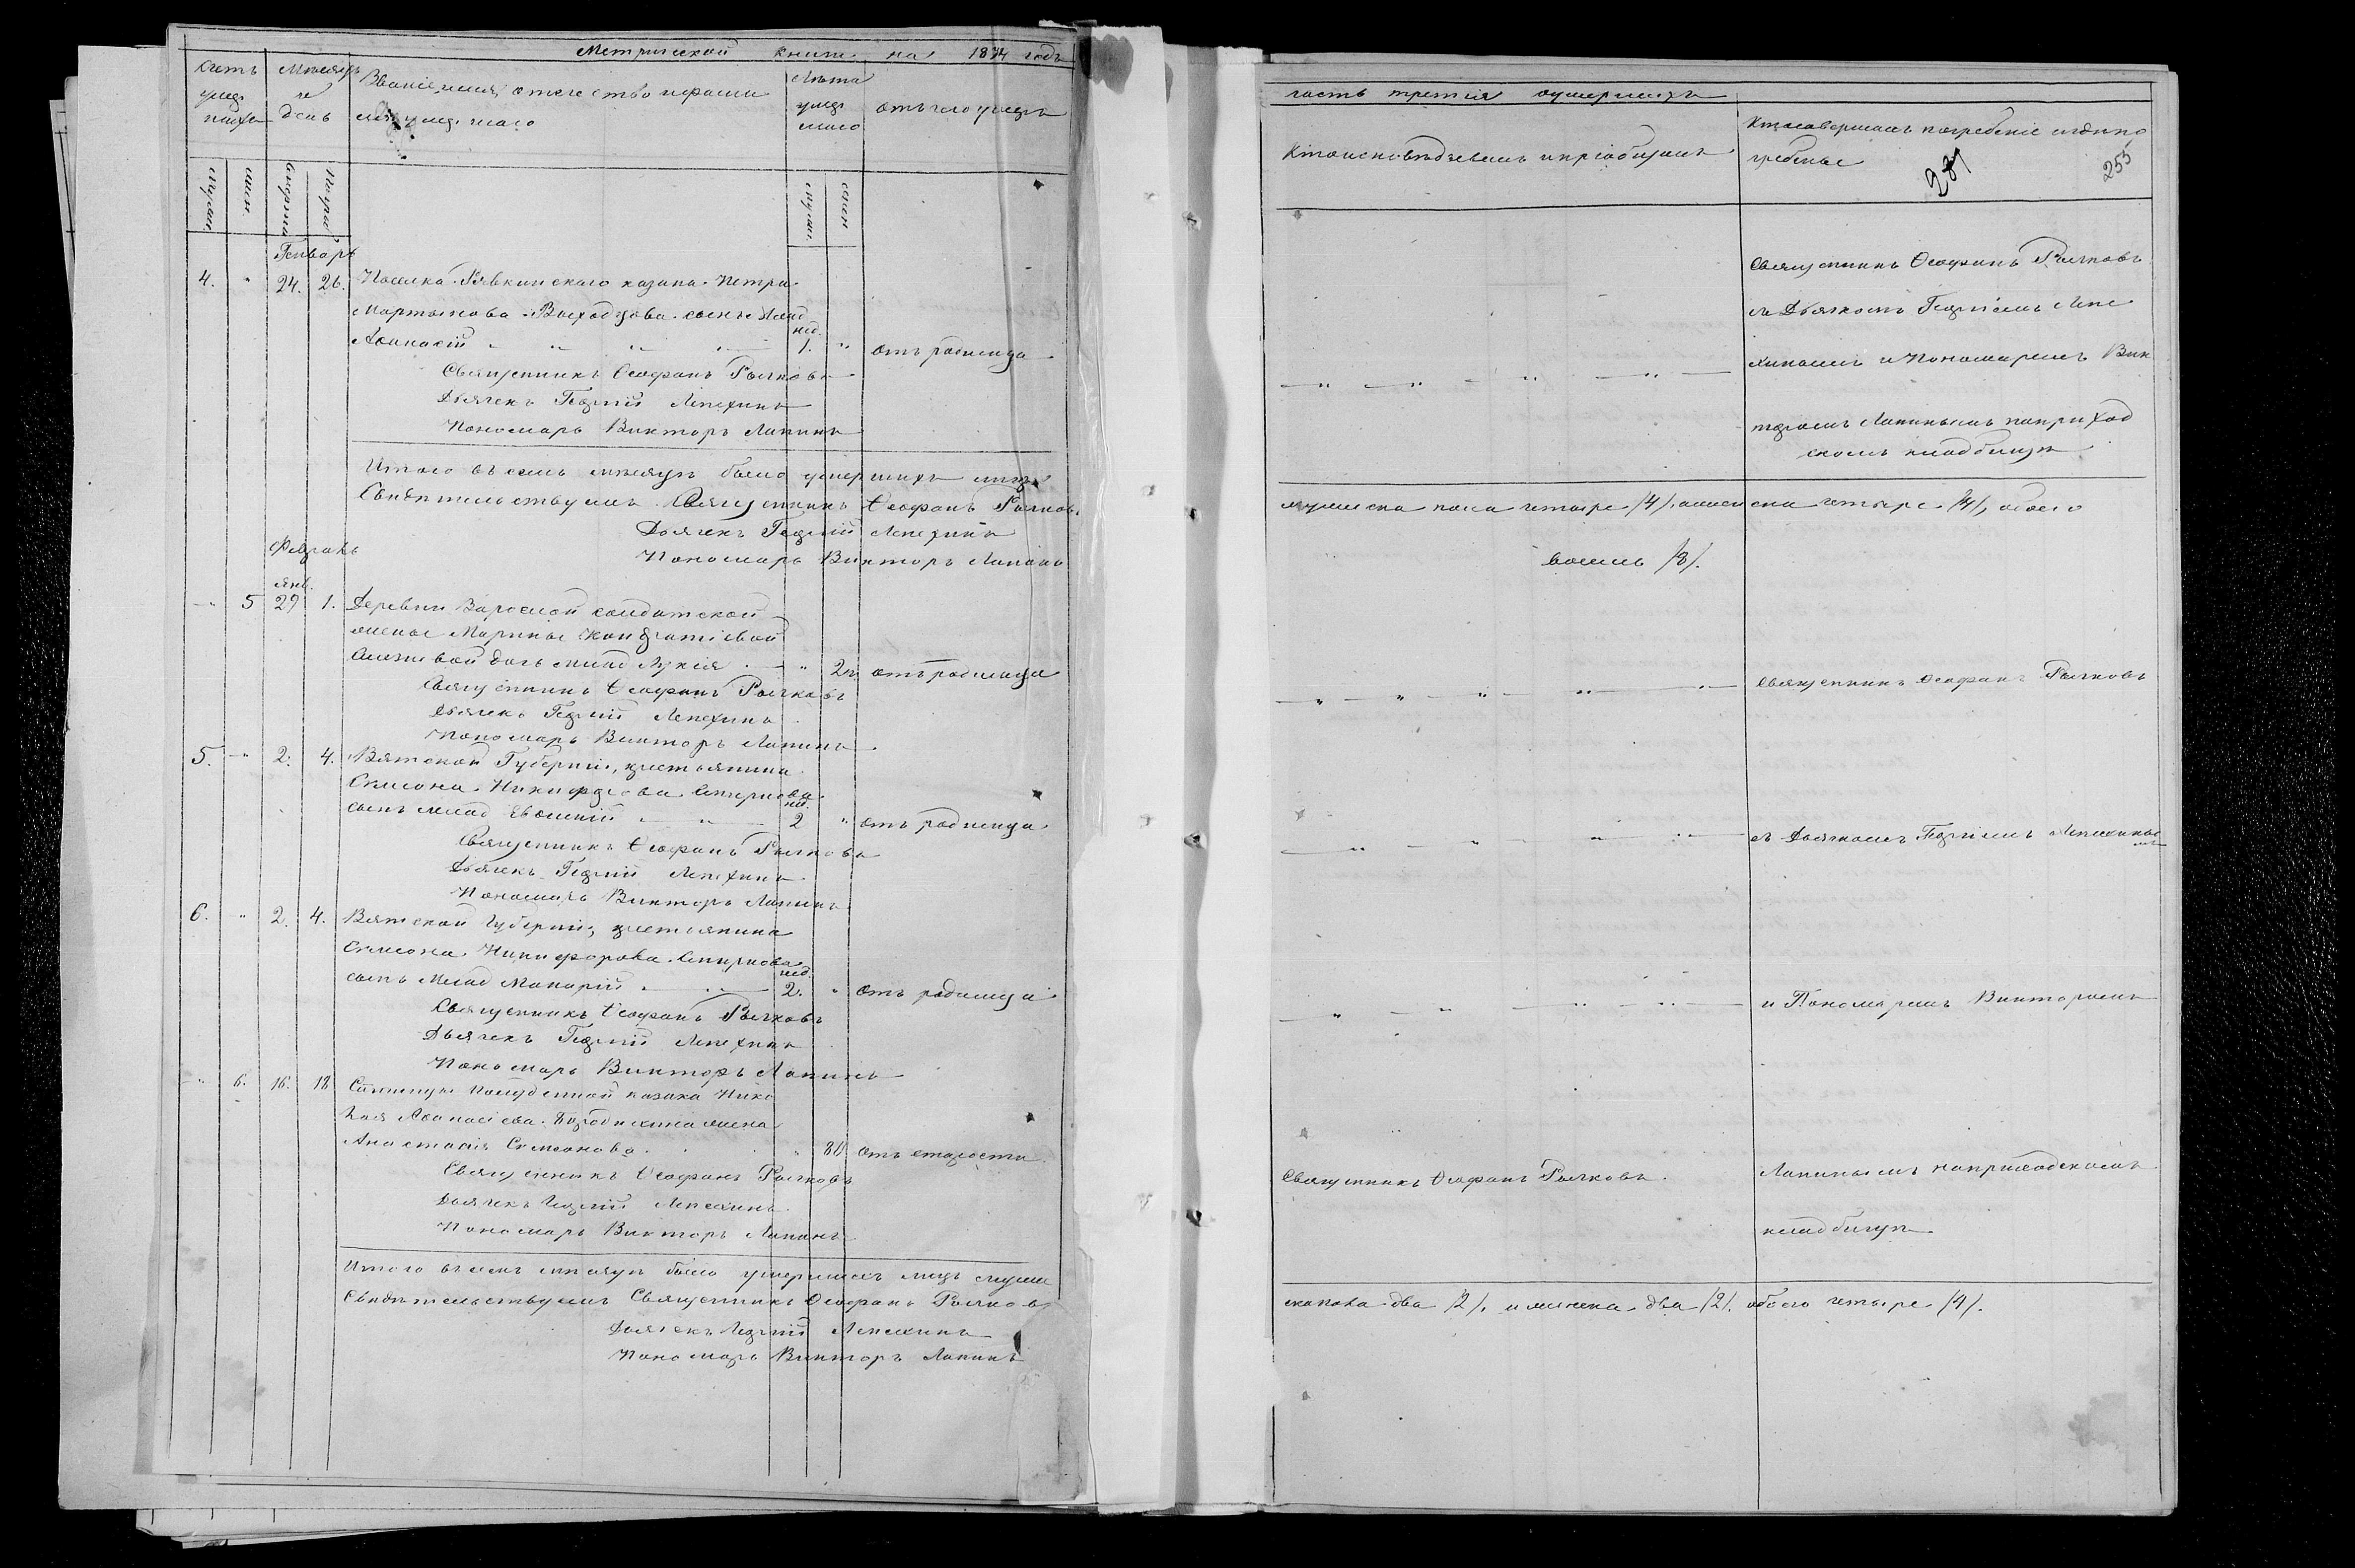 Метрической книги на 1874 годъ
Счетъ умерших
Мѣсяцъ и день
Званіе, имя, отечество и фами
лія умершаго
Лѣта умершаго
отъ чего умеръ
Мужеск.
Женск.
Смерти
Погреб.
Мужск.
Женск
Генварь
4. " 24. 26. Поселка казака Петра
Мартынова Выходцова сынъ Млад
нед.
Аѳанасій " " " 1. " отъ родимца
Священникъ Ѳеофанъ Рычковъ
Дьячекъ Георгій Лепехинъ
Пономарь Викторъ Лапинъ
Итого въ семъ мѣсяцѣ было умершихъ
Свидѣтельствуемъ Священникъ Ѳеофанъ Рычковъ
Дьячекъ Георгій Лепехинъ
Пономарь Викторъ Лапинъ
Февраль
янв.
" 5 29 1. Деревни солдатской
жены Марины Кондратіевой
дочь млад Лукія " 2 н отъ родимца
Священникъ Ѳеофанъ Рычковъ
Дьячекъ Георгій Лепехинъ
Пономарь Викторъ Лапинъ
5. " 2. 4. Вятской Губерніи, крестьянина
Симеона Никифорова Смирнова
нед.
сынъ млад Евѳимій " " 2 " отъ родимца
Священникъ Ѳеофанъ Рычковъ
Дьячекъ Георгій Лепехинъ
Пономарь Викторъ Лапинъ
6. " 2. 4. Вятской Губерніи, крестьянина
Симеона Никифорова Смирнова
нед.
сынъ Млад Макарій " " 2. " отъ родимца
Священникъ Ѳеофанъ Рычковъ
Дьячекъ Георгій Лепехинъ
Пономарь Викторъ Лапинъ
" 6. 16. 18 Станицы казака Нико
лая Аѳанасіева жена
Анастасія Симеонова " 80 отъ старости
Священникъ Ѳеофанъ Рычковъ
Дьячекъ Георгій Лепехинъ
Пономарь Викторъ Лапинъ
Итого въ семъ мѣсяцѣ было умершихъ муже
Свидѣтельствуемъ Священникъ Ѳеофанъ Рычковъ
Дьячекъ Георгій Лепехинъ
Пономарь Викторъ Лапинъ
часть третія о умершихъ
Кто исповѣдывалъ и пріобщалъ
Кто совершалъ погребеніе и гдѣ по
гребены
255
Священникъ Ѳеофанъ Рычковъ
съ Дьячкомъ Георгіемъ Лепе
хинымъ и Пономаремъ Вик
торомъ Лапинымъ на приход
скомъ кладбищѣ
мужеска пола четыре /4/, женска четыре /4/, обоего
восемь /8/.
Священникъ Ѳеофанъ Рычковъ
съ Дьячкомъ Георгіемъ Лепехины
мъ
и Пономаремъ Викторомъ
Священникъ Ѳеофанъ Рычковъ.
Лапинымъ на приходскомъ
кладбищѣ
ска пола два /2/. и женска два /2/. обоего четыре /4/.